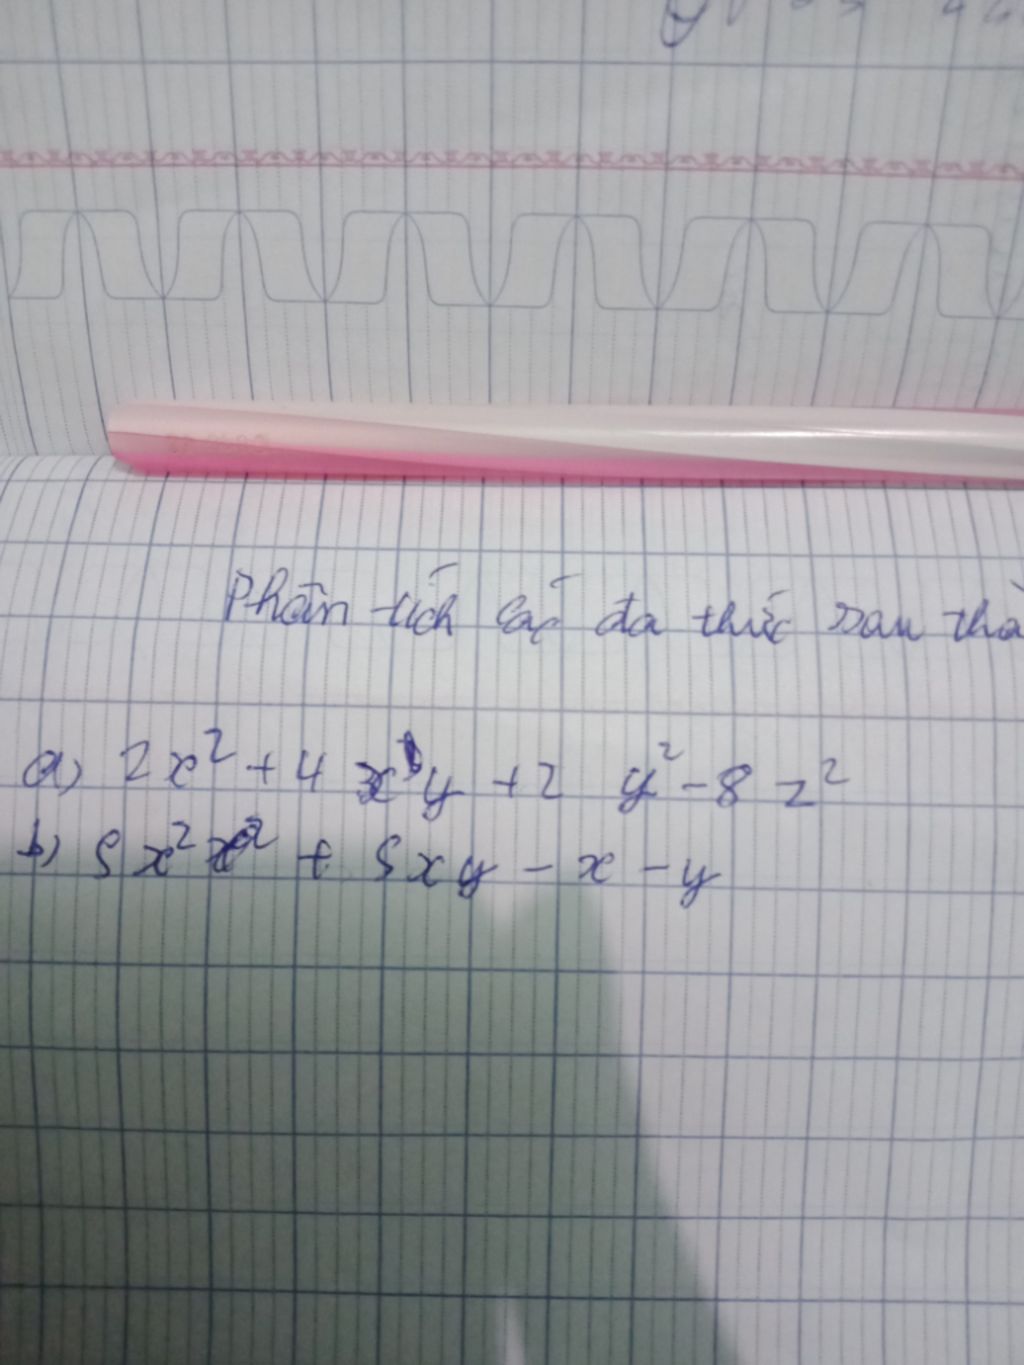 Phân tích các đa thức sau thà
a) 2x² + 4xy + 2 y² - 8 z²
b) 5x² + 5xy - x - y